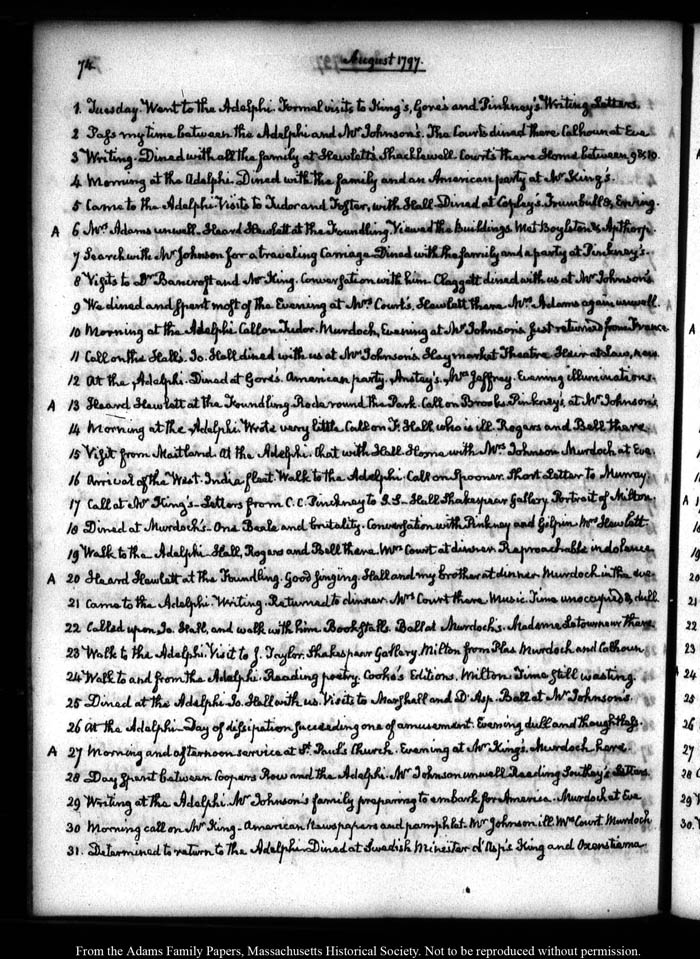 74
August 1797.
1. Tuesday. Went to the Adelphi. Formal visits to King's, Gore's and Pinkney's. Writing Letters.
2 Pass my time between the Adelphi and Mr Johnson's. The Courts dined there Calhoun at Eve
3 Writing. Dined with all the family at Hewlett's. Shacklewell. Courts there Home between 9 & 10.
4 Morning at the Adelphi. Dined with the family and an American party at Mr King's.
5 Came to the Adelphi. Visits to Tudor and Foster, with Hall. Dined at Copley's. Trumbull &c. Evening.
A 6 Mrs Adams unwell. Heard Hewlett at the Foundling. Viewed the Buildings. Met Boylston & Apthorp.
7 Search with Mr Johnson for a traveling Carriage. Dined with the family and a party at Pinkney's.
8 Visits to Dr Bancroft and Mr King. Conversation with him. Claggett dined with us at Mr Johnson's
9 We dined and spent most of the Evening at Mrs Court's. Hewlett there. Mrs Adams again unwell.
10 Morning at the Adelphi. Call on Tudor. Murdoch, Evening at Mr Johnson's just returned from France
11 Call on the Hall's. Jo. Hall dined with us at Mr Johnson's. Haymarket Theatre Heir at Law, new
12 At the Adelphi. Dined at Gore's. American party. Anstey's. Mrs Jaffray. Evening illuminations.
A 13 Heard Hewlett at the Foundling. Rode round the Park. Call on Brooks. Pinkney's, at Mr Johnson's,
14 Morning at the Adelphi. Write very little. Call on J. Hall who is ill. Rogers and Bell there
15 Visit from Maitland. At the Adelphi. Chat with Hall. Home with Mrs Johnson Murdoch at Eve
16 Arrival of the West-India fleet. Walk to the Adelphi. Call on Spooner. Short Letter to Murray.
17 Call at Mr King's. Letters from C. C. Pinckney to I. S. Hall Shakespear Gallery. Portrait of Milton.
18 Dined at Murdoch's. One Beale and brutality. Conversation with Pinkney and Gilpin. Mrs Hewlett
19 Walk to the Adelphi. Hall, Rogers and Bell there. Mrs Court at dinner. Reproachable indolence.
A 20 Heard Hewlett at the Foundling. Good singing. Hall and my brother at dinner. Murdoch in the eve
21 Came to the Adelphi. Writing. Returned to dinner. Mrs Court there Music. Time unoccupied & dull
22 Called upon Jo. Hall, and walk with him Book Stalls. Ball at Murdoch's. Madame Letourneur there
23 Walk to the Adelphi. Visit to J. Taylor. Shakespear Gallery. Milton from Plas Murdoch and Calhoun
24 Walk to and from the Adelphi. Reading poetry. Cooke's Editions. Milton. Time still wasting.
25 Dined at the Adelphi. Jo. Hall with us. Visits to Marshall and D'Asp. Ball at Mr Johnson's.
26 At the Adelphi. Day of dissipation succeeding one of amusement. Evening dull and thoughtless.
A 27 Morning and afternoon service at St. Paul's Church. Evening at Mr King's. Murdoch here.
28 Day spent between Coopers Row and the Adelphi. Mr Johnson unwell Reading Southey's Letters.
29 Writing at the Adelphi. Mr Johnson's family preparing to embark for America. Murdoch at Eve
30 Morning call on Mr King. American Newspapers and pamphlet. Mr Johnson ill. Mrs Court Murdoch
31. Determined to return to the Adelphi. Dined at Swedish Minister d'Asp's King and Oxenstierna
From the Adams Family Papers, Massachusetts Historical Society. Not to be reproduced without permission.